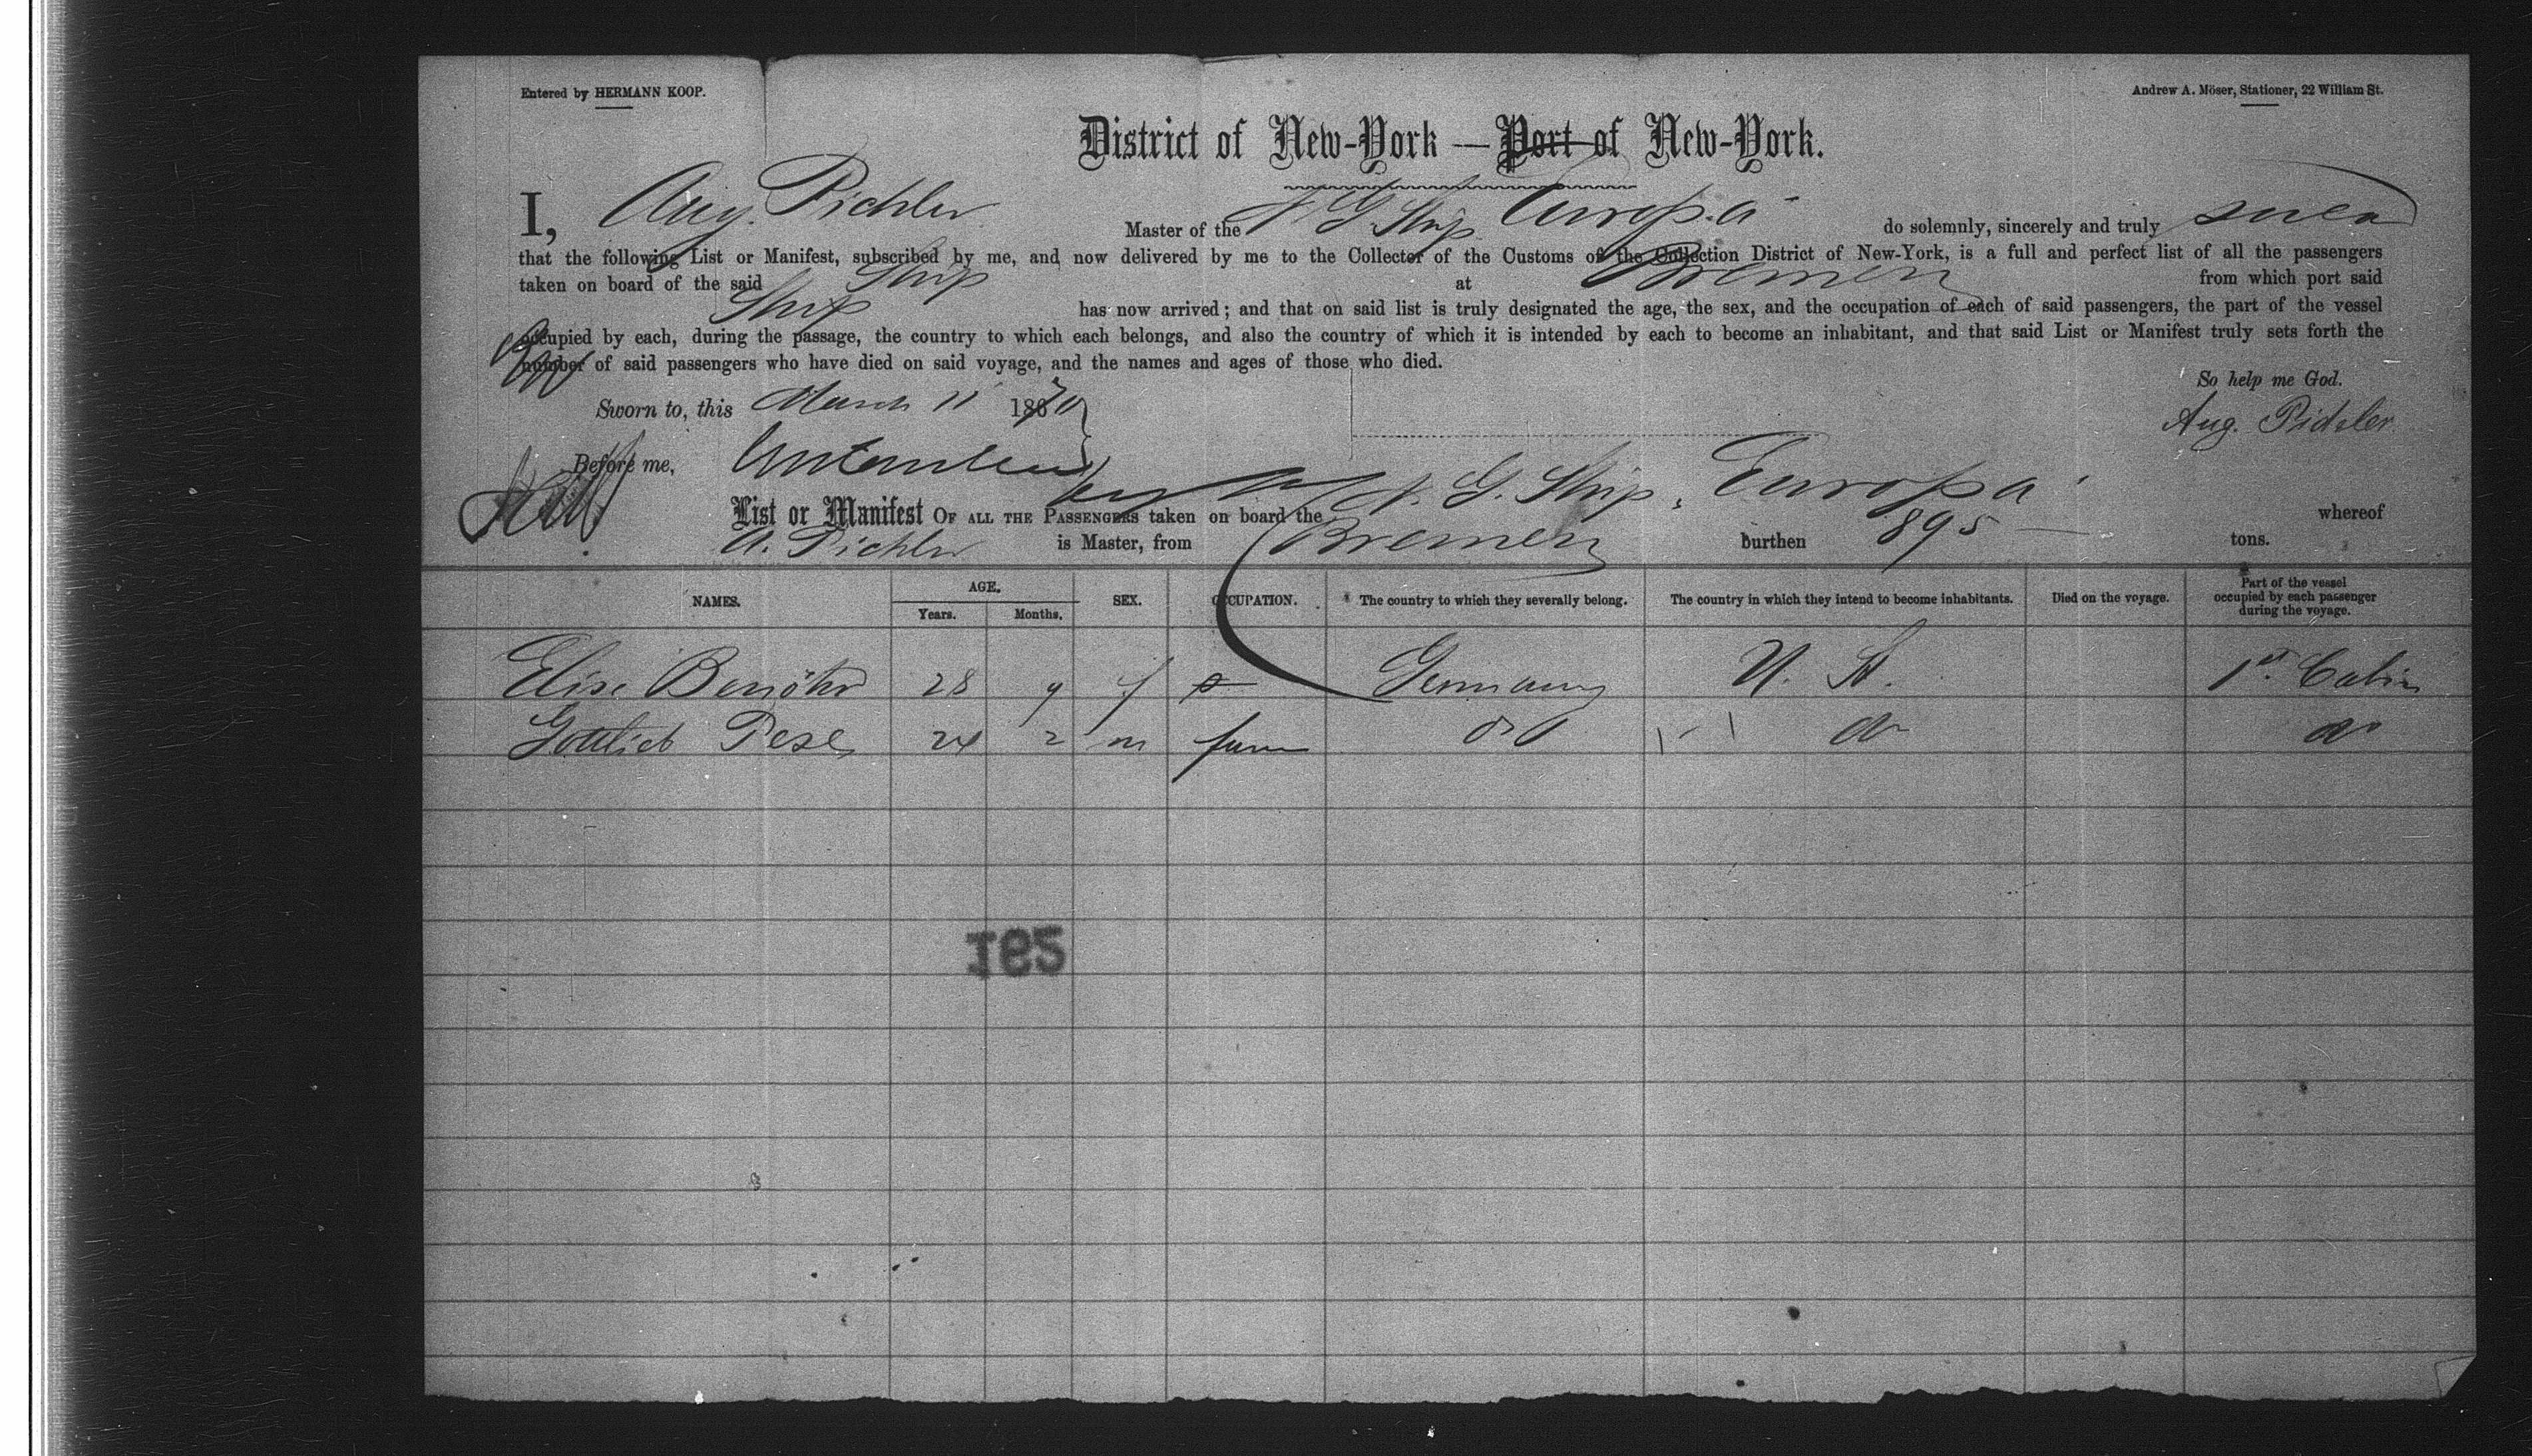 Entered by HERMANN KOOP.
Andrew A. Möser, Stationer, 22 William St.
District of New-York — Port of New-York.
I, Aug. Pichler Master of the N G Ship Europa do solemnly, sincerely and truly swear
that the following List or Manifest, subscribed by me, and now delivered by me to the Collector of the Customs of the Collection District of New-York, is a full and perfect list of all the passengers
taken on board of the said Ship at Bremen from which port said
Ship has now arrived; and that on said list is truly designated the age, the sex, and the occupation of each of said passengers, the part of the vessel
occupied by each, during the passage, the country to which each belongs, and also the country of which it is intended by each to become an inhabitant, and that said List or Manifest truly sets forth the
number of said passengers who have died on said voyage, and the names and ages of those who died.
So help me God.
Sworn to, this March 11 1870
Aug. Pichler
Before me,
List or Manifest OF ALL THE PASSENGERS taken on board the N. G. Ship Europa whereof
A. Pichler is Master, from Bremen burthen 895 tons.
NAMES. AGE. Years. Months. SEX. OCCUPATION. The country to which they severally belong. The country in which they intend to become inhabitants. Died on the voyage. Part of the vessel occupied by each passenger during the voyage.
Elise 28 9 f Germany U. St. 1st. Cabin
Gottlieb Pese 24 2 m farm do do do
195